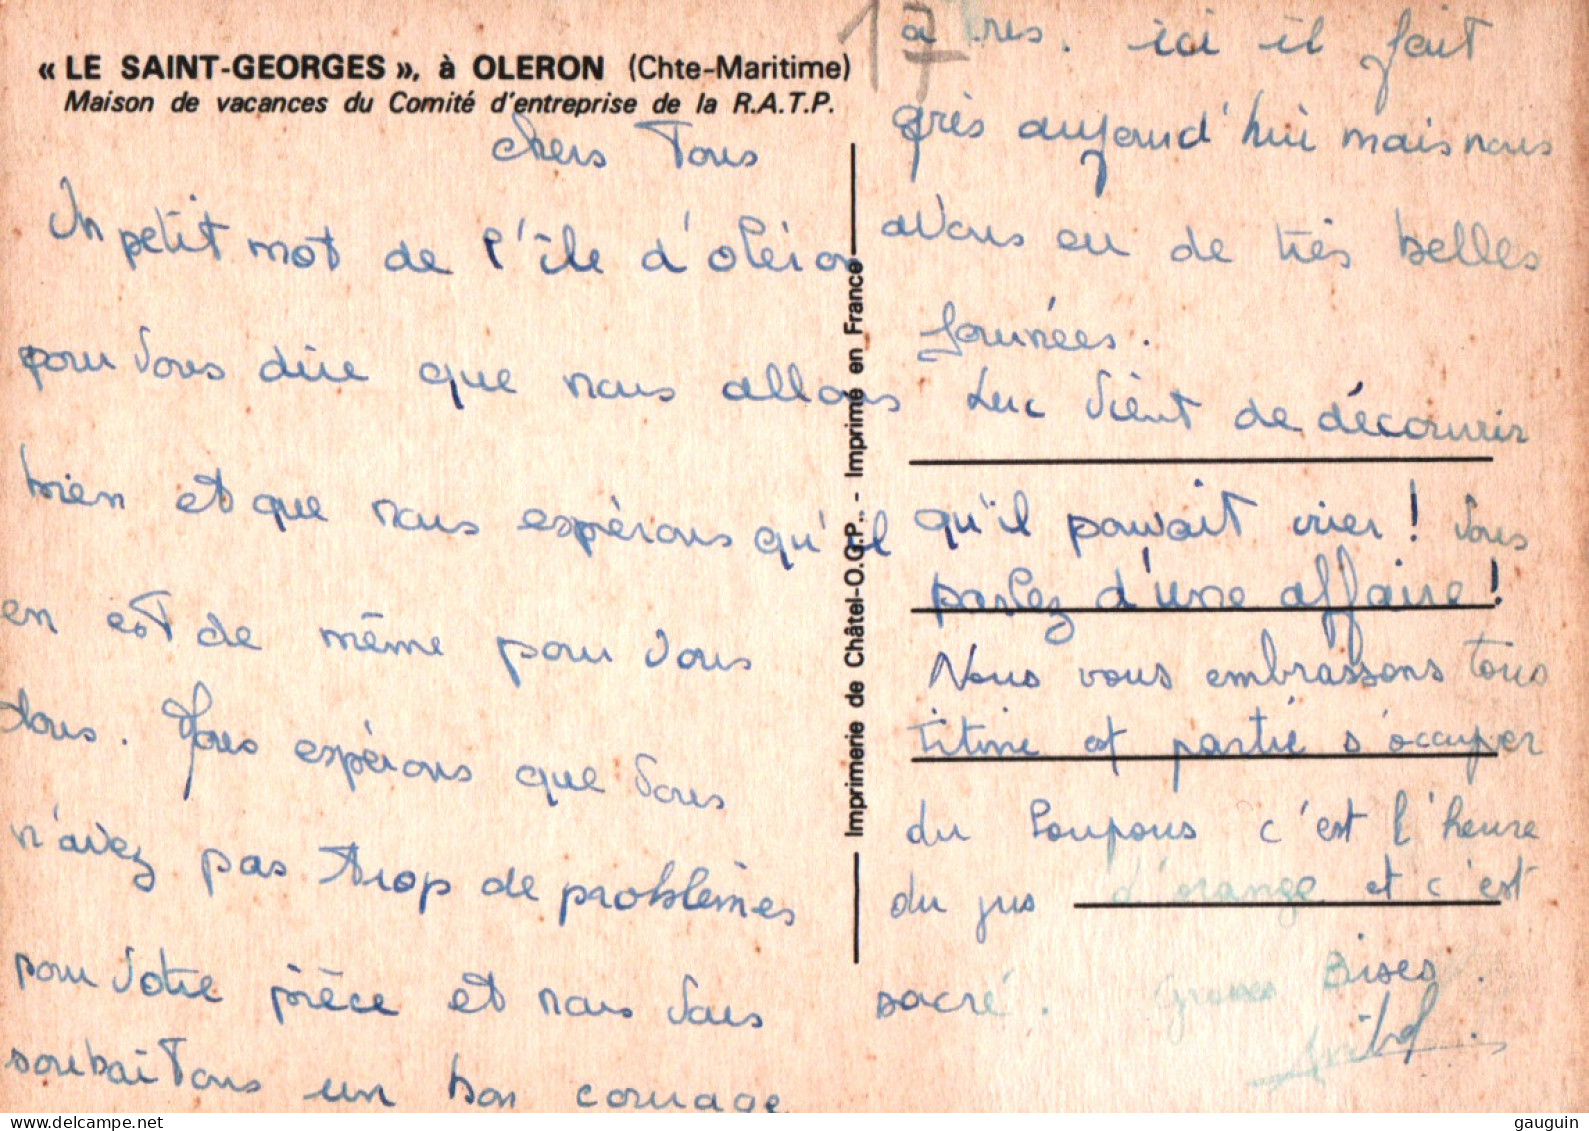 « LE SAINT-GEORGES », à OLERON (Chte-Maritime)
Maison de vacances du Comité d'entreprise de la R.A.T.P.
17
Chers Tous
Un petit mot de l'île d'oléron
pour vous dire que nous allons
bien et que nous espérons qu'il
en est de même pour vous
tous. Nous espérons que vous
n'avez pas trop de problèmes
pour votre pièce et nous vous
souhaitons un bon courage
Imprimerie de Châtel-O.G.P. - Imprimé en France
à tres. ici il fait
gris aujourd'hui mais nous
avons eu de très belles
journées.
Luc vient de découvrir
qu'il pouvait crier ! vous
parlez d'une affaire !
Nous vous embrassons tous
titine est partie s'occuper
du Loupous c'est l'heure
du jus d'orange et c'est
sacré. Grosses Bises.
delcampe.net
gauguin